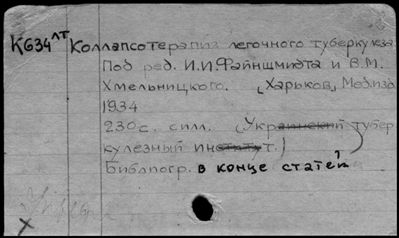 К634лт Коллапсотерапия легочного туберкулеза
Под ред. И.И.Файншмидта и В.М.
Хмельницкого. (Харьков, Медизд
1934
230с. с илл. (Украинский тубер
кулезный институт.)
Библиогр. в конце статей